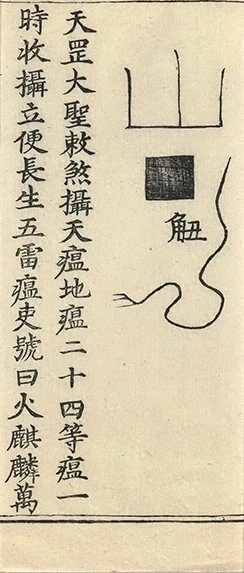 天罡大聖敕煞攝天瘟地瘟二十四等瘟一
時收攝立便長生五雷瘟吏號曰火麒麟萬